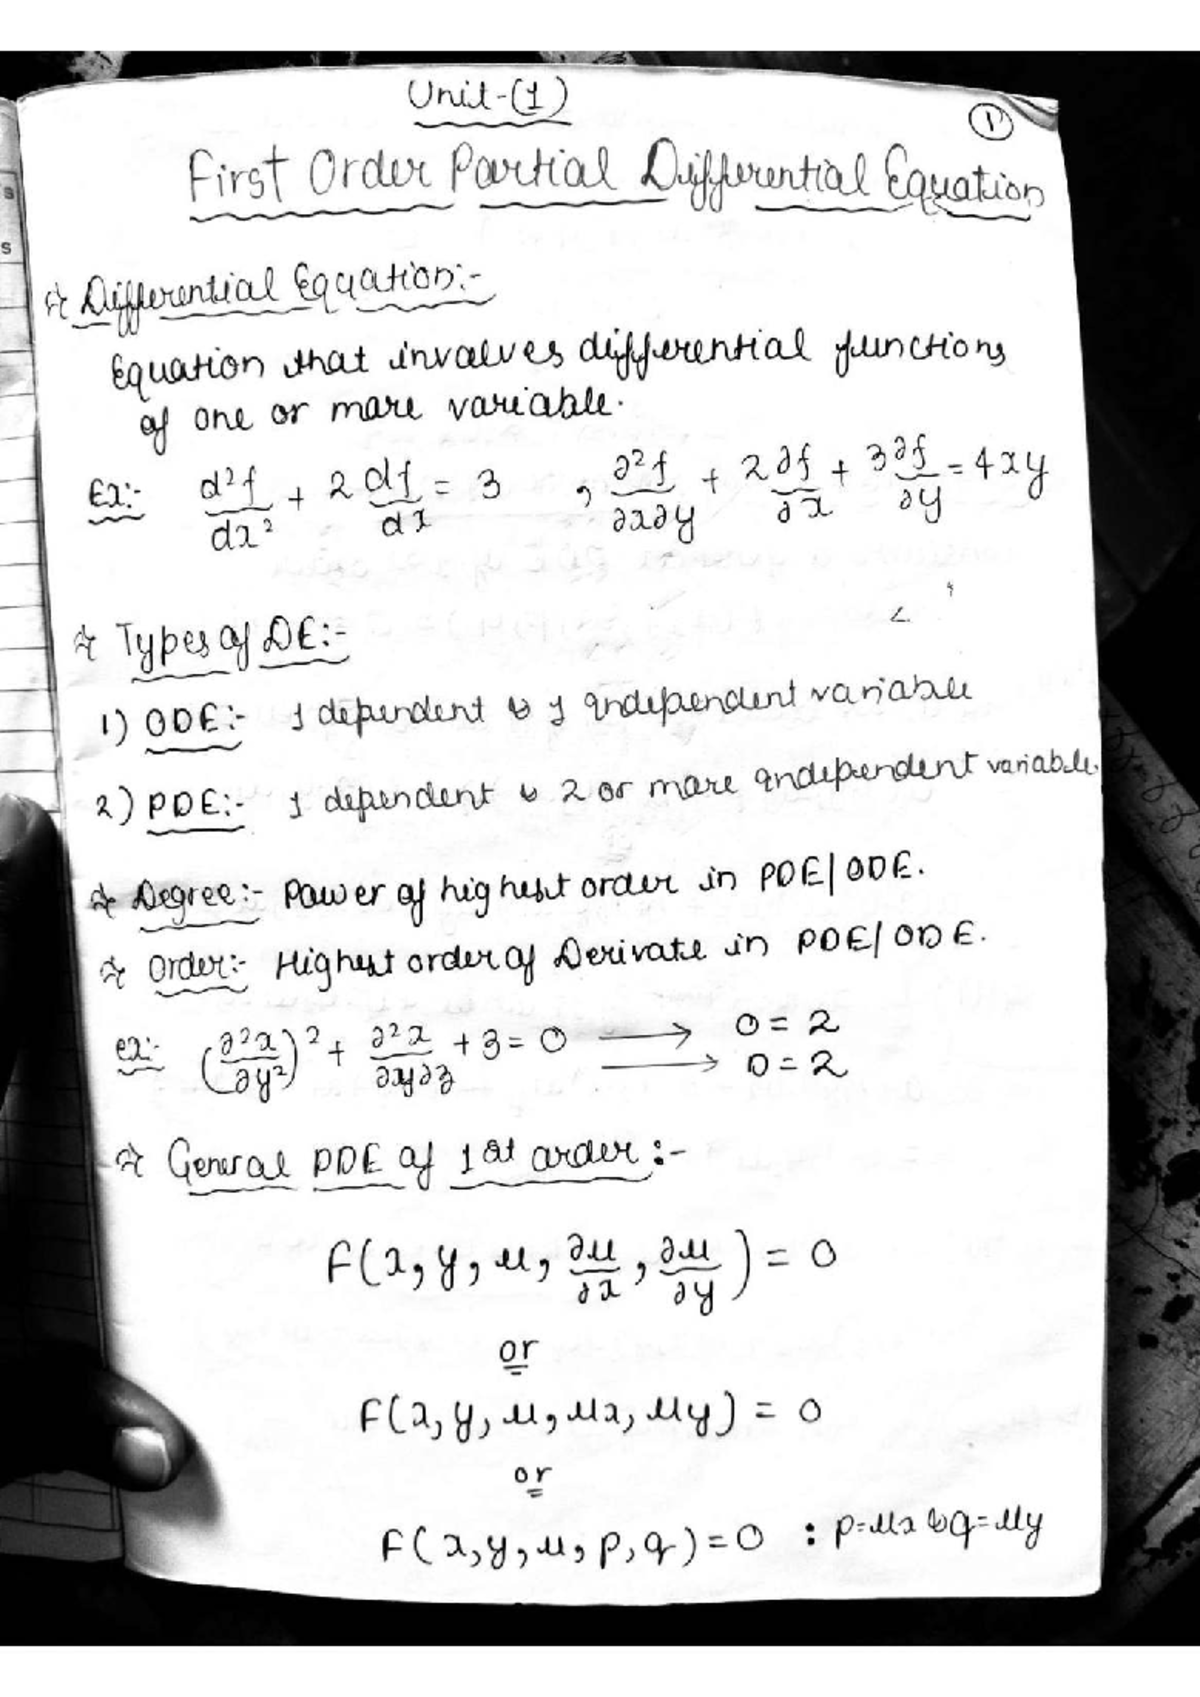 Unit-(1)
1
First Order Partial Differential Equation
☆ Differential Equation:-
Equation that involves differential functions
of one or more variable.
Ex:- d²f/dx² + 2 df/dx = 3 , ∂²f/∂x∂y + 2 ∂f/∂x + 3 ∂f/∂y = 4xy
☆ Types of DE:-
1) ODE:- 1 dependent & 1 independent variable
2) PDE:- 1 dependent & 2 or more independent variable
☆ Degree:- Power of highest order in PDE/ODE.
☆ Order:- Highest order of Derivate in PDE/ODE.
ex:- (∂²x/∂y²)² + ∂²x/∂y∂z + 3 = 0 → O = 2
→ D = 2
☆ General PDE of 1st order :-
F(x, y, u, ∂u/∂x, ∂u/∂y) = 0
or
F(x, y, u, ux, uy) = 0
or
F(x, y, u, p, q) = 0 : p=ux & q=uy